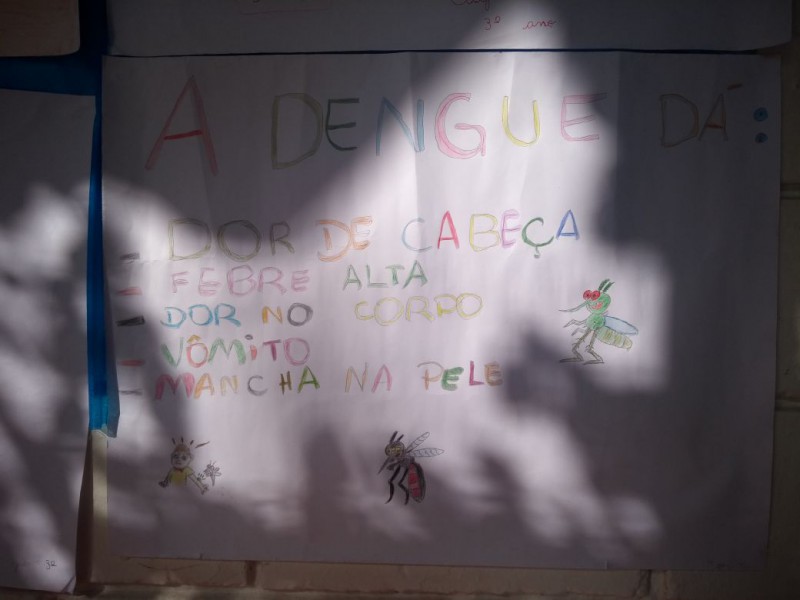 3º ano
A DENGUE DÁ:
- DOR DE CABEÇA
- FEBRE ALTA
- DOR NO CORPO
- VÔMITO
- MANCHA NA PELE
3º